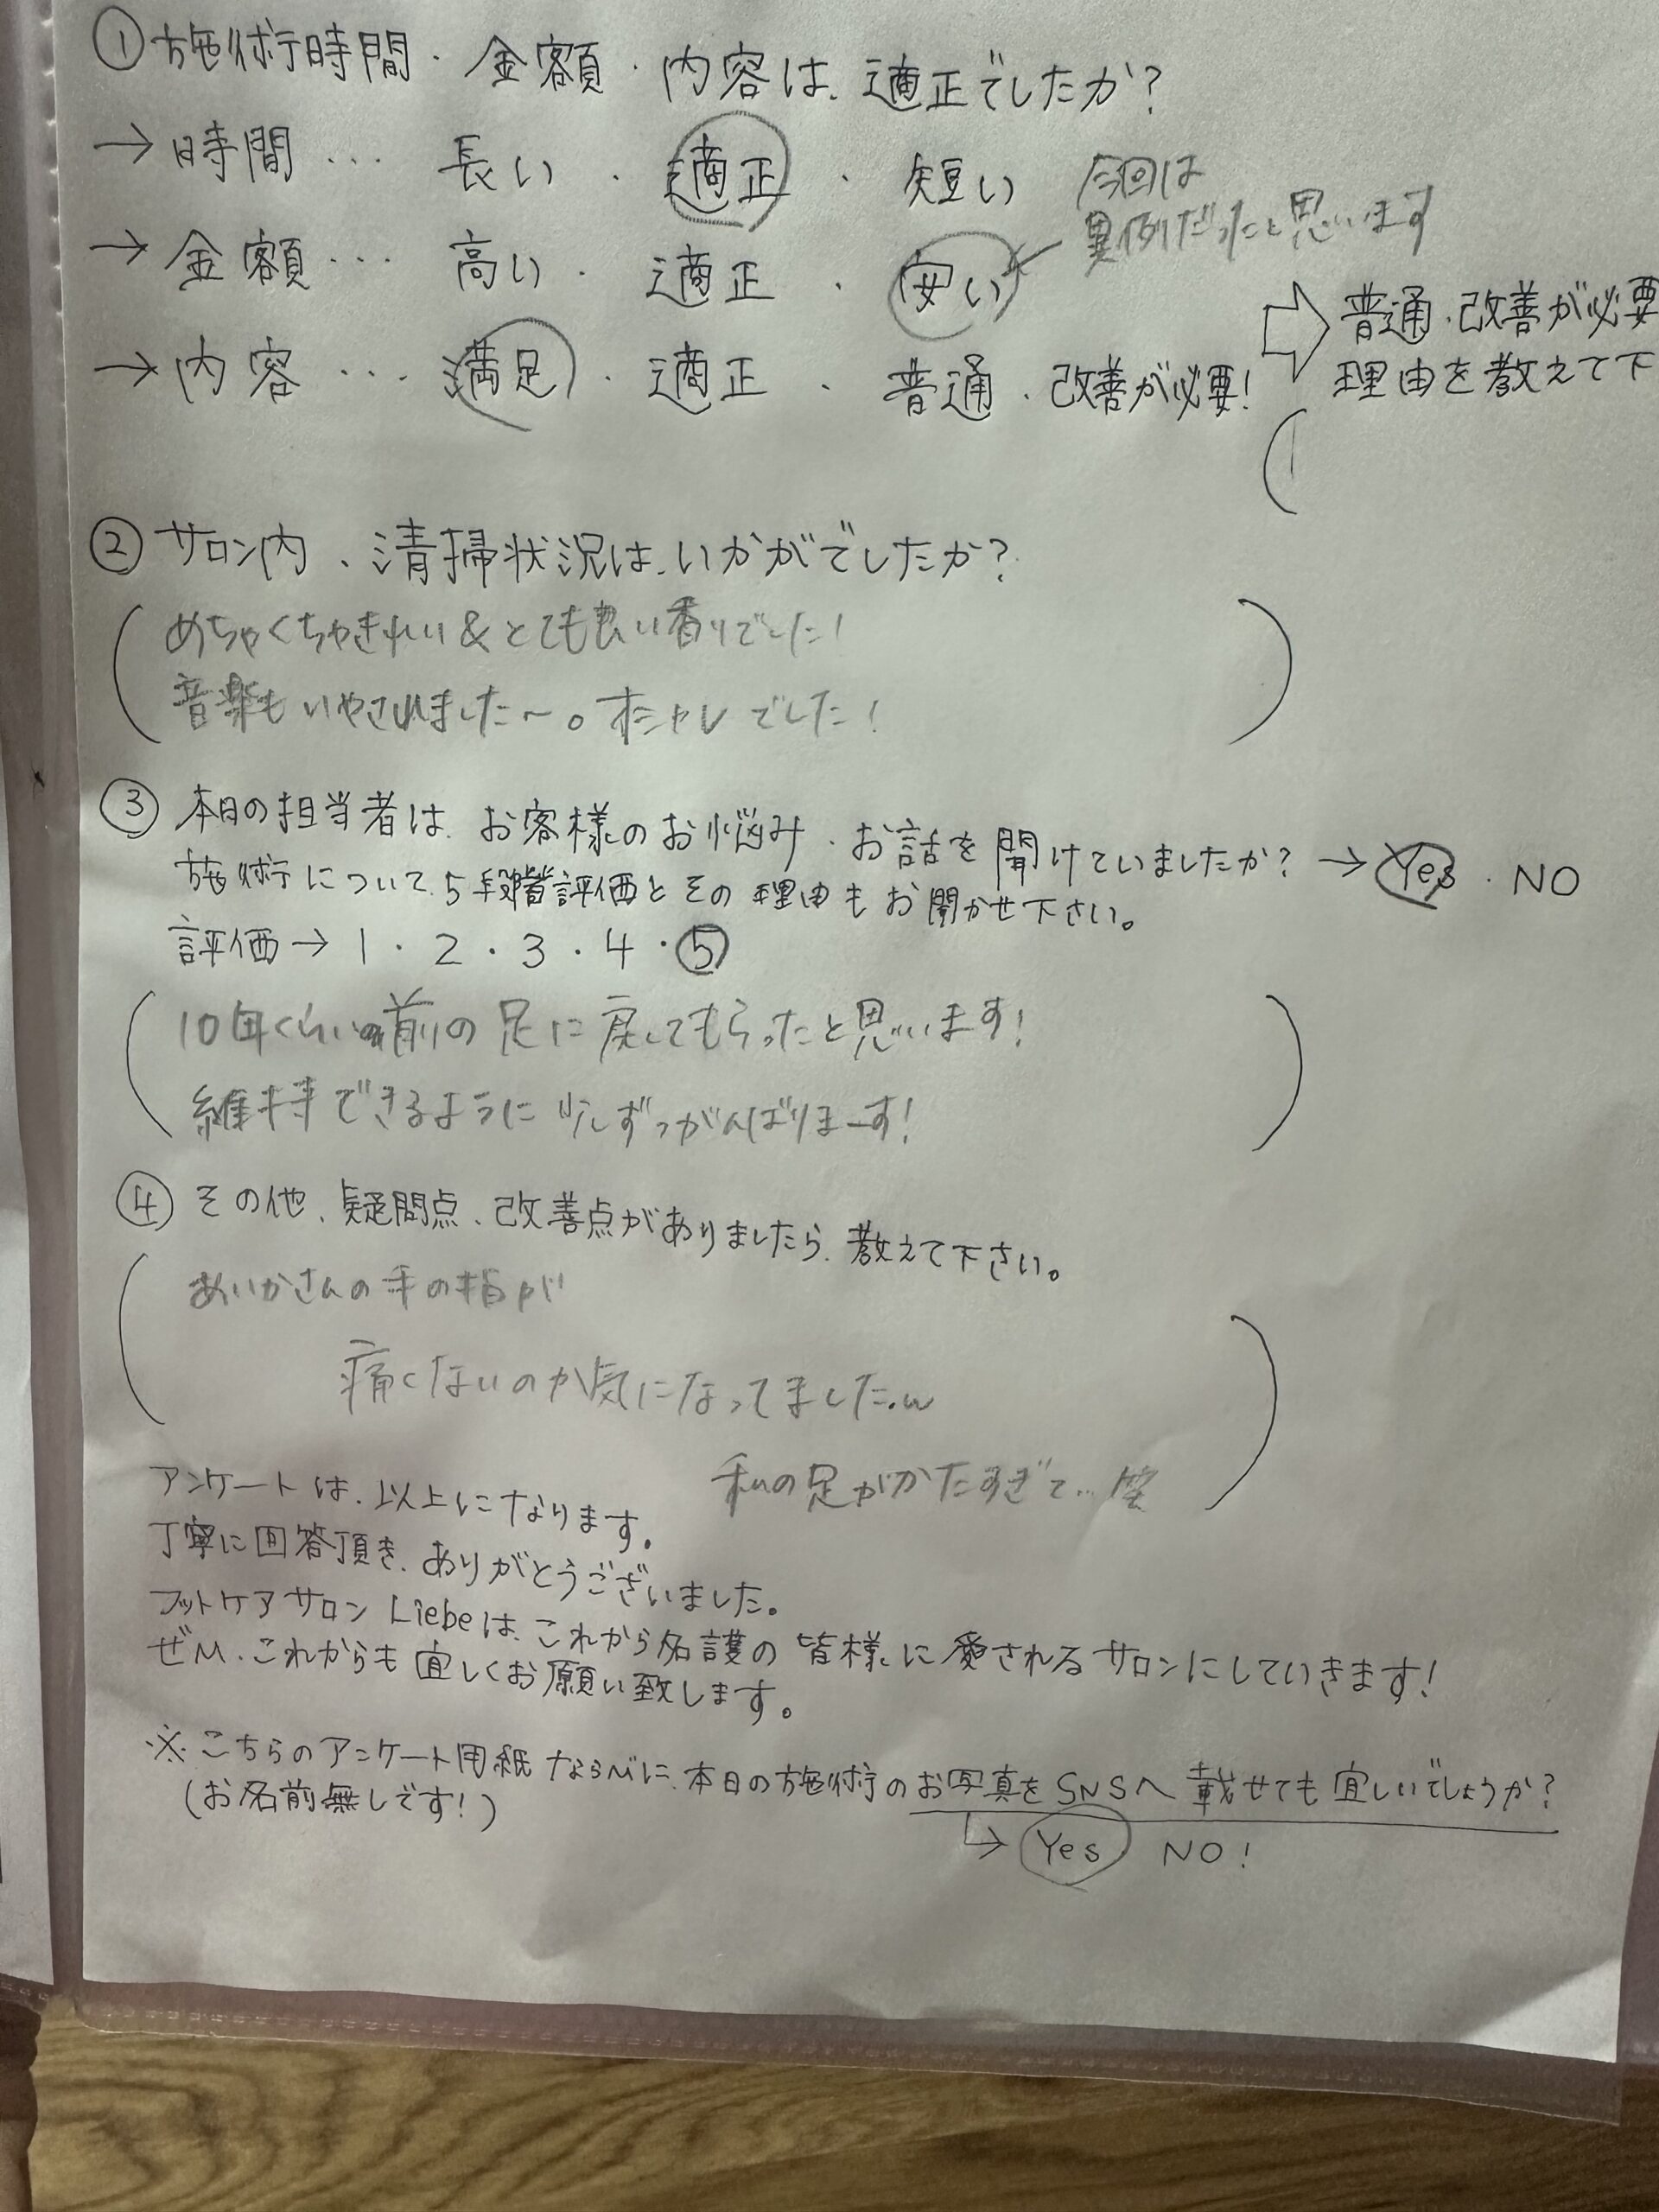 ①施術時間・金額・内容は、適正でしたか?
→時間… 長い・適正・短い 今回は
異例だったと思います
→金額… 高い・適正・安い
→内容… 満足・適正・普通・改善が必要!
普通・改善が必要
理由を教えて下
②サロン内、清掃状況は、いかがでしたか?
めちゃくちゃきれい&とても良い香りでした!
音楽もいやされました〜。オシャレでした!
③本日の担当者は、お客様のお悩み・お話を聞けていましたか?→Yes・NO
施術について、5段階評価とその理由もお聞かせ下さい。
評価→1・2・3・4・5
10年くらい前の足に戻してもらったと思います!
維持できるように少しずつがんばりまーす!
④その他、疑問点、改善点がありましたら、教えて下さい。
あいかさんの手の指が
痛くないのか気になってました.w
私の足がかたすぎて..笑
アンケートは、以上になります。
丁寧に回答頂き、ありがとうございました。
フットケアサロンLiebeは、これから名護の皆様に愛されるサロンにしていきます!
ぜひ、これからも宜しくお願い致します。
※こちらのアンケート用紙ならびに、本日の施術のお写真をSNSへ載せても宜しいでしょうか?
(お名前無しです!)
→Yes NO!